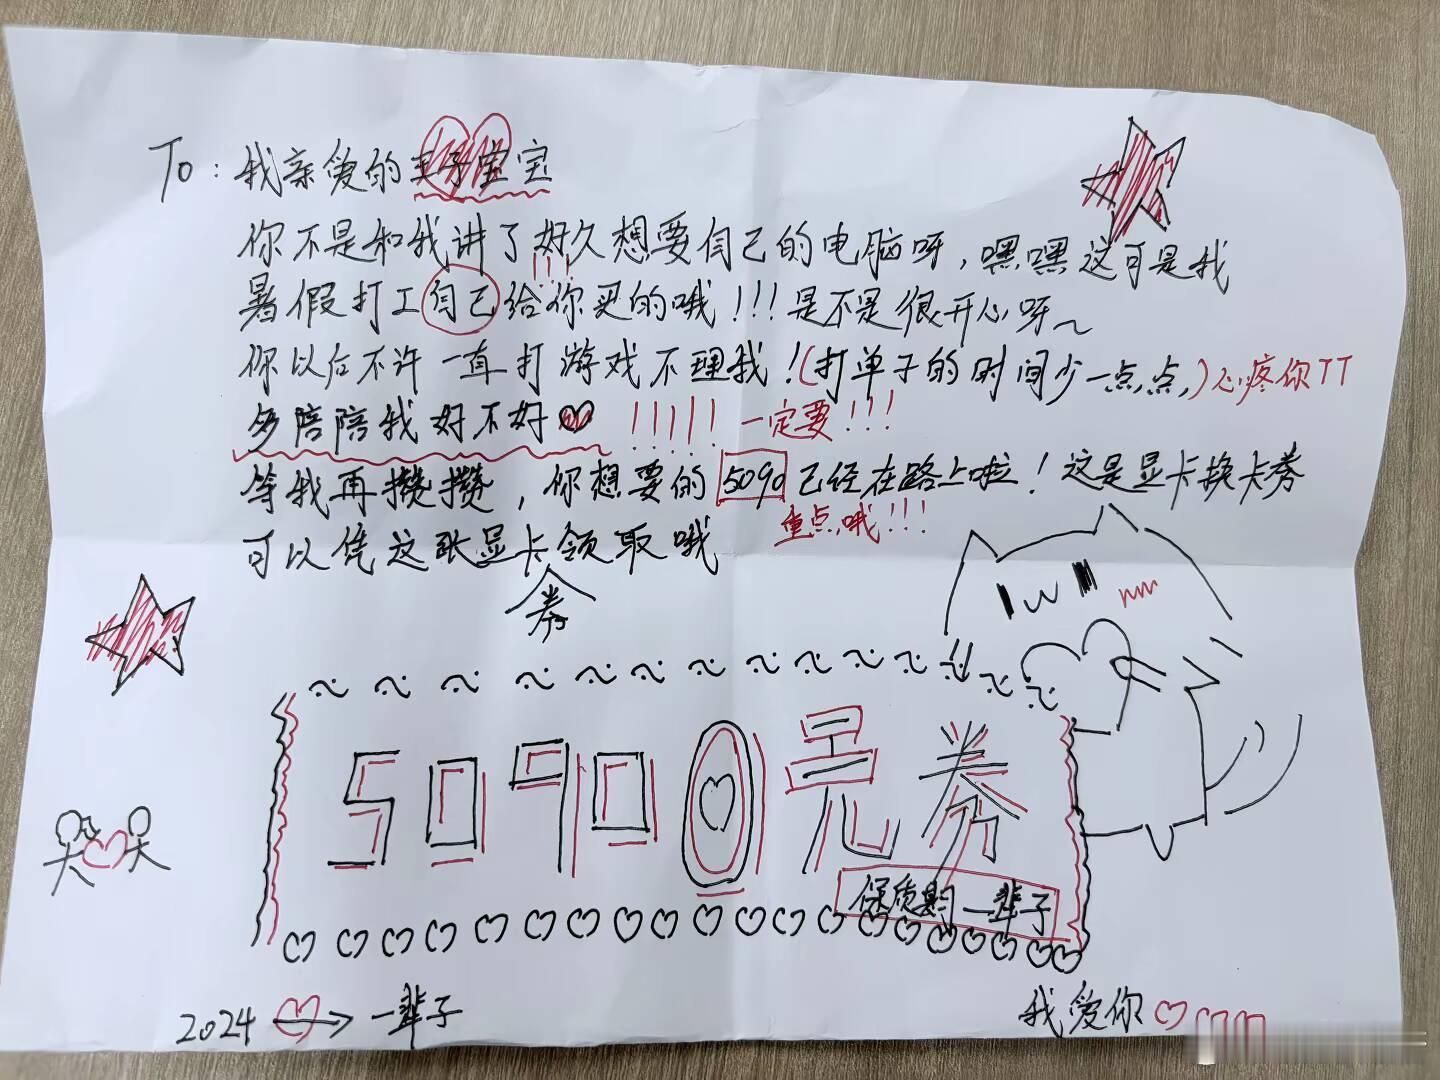 To：我亲爱的王子宝宝
你不是和我讲了好久想要自己的电脑呀，嘿嘿这可是我
!!!
暑假打工自己给你买的哦！！！是不是很开心呀～
你以后不许一直打游戏不理我！(打单子的时间少一点点,)心疼你TT
多陪陪我好不好♡ ！！！！！一定要！！！
等我再攒攒，你想要的5090已经在路上啦！这是显卡换卡券
重点哦！！！
可以凭这张显卡领取哦
券
50900元券
保质期一辈子
2024 一辈子
我爱你